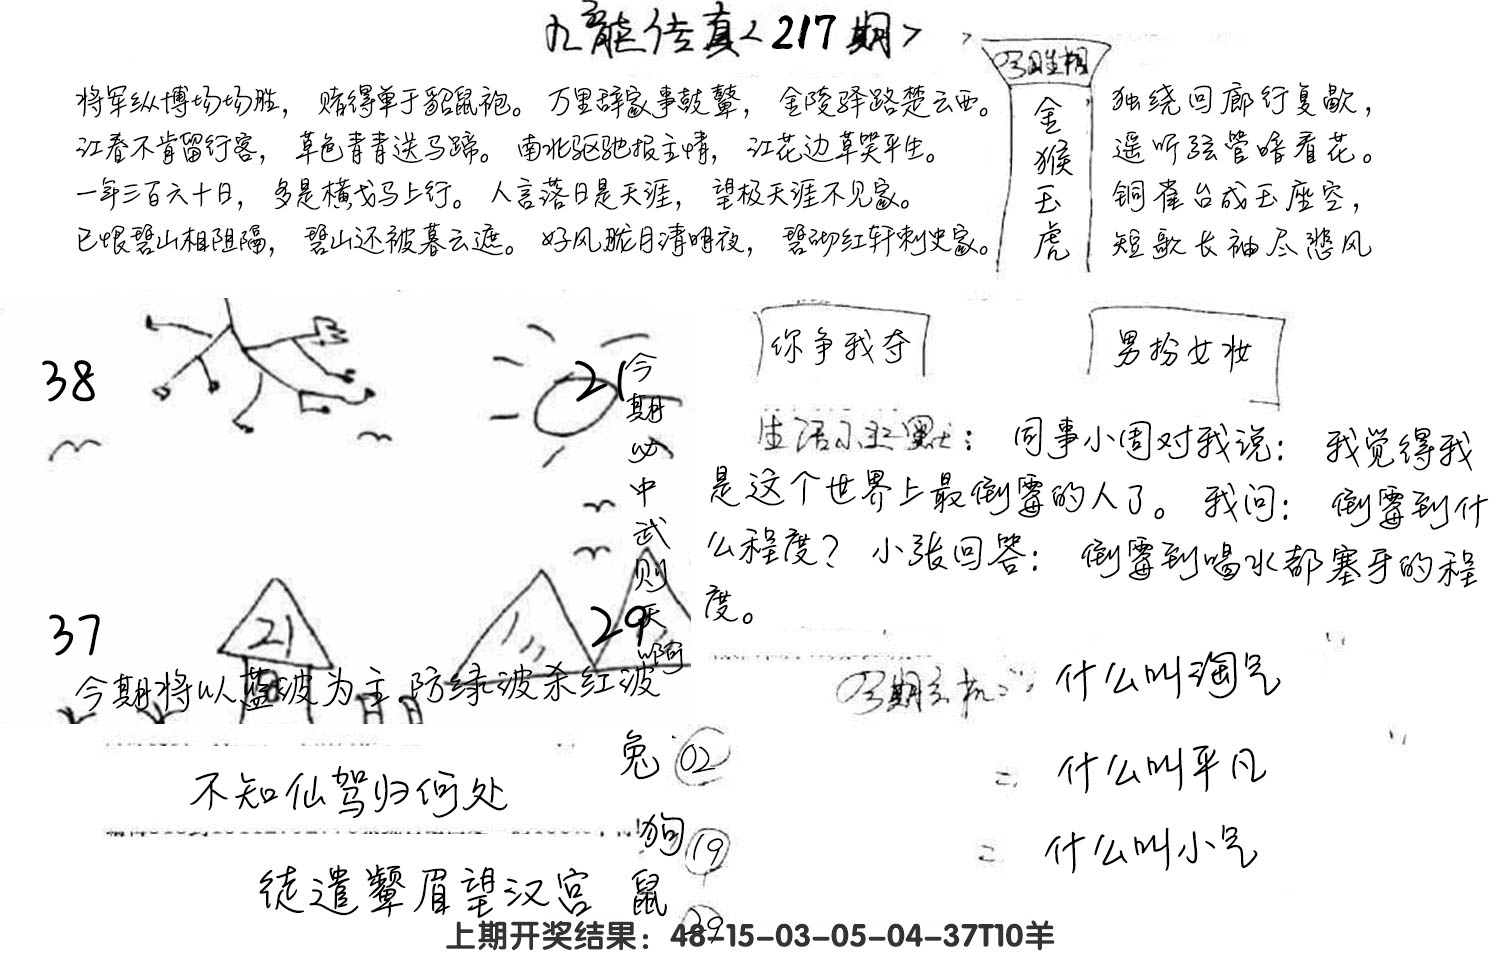 九龍传真<217期>
将军纵博场场胜，赌得单于貂鼠袍。万里辞家事鼓鼙，金陵驿路楚云西。
江春不肯留行客，草色青青送马蹄。南北驱驰报主情，江花边草笑平生。
一年三百六十日，多是横戈马上行。人言落日是天涯，望极天涯不见家。
已恨碧山相阻隔，碧山还被暮云遮。好风胧月清明夜，碧砌红轩刺史家。
金猴玉虎
独绕回廊行复歇，
遥听弦管暗看花。
铜雀台成玉座空，
短歌长袖尽悲风
38
21
37
21
29
今期必中武则天啊
今期将以蓝波为主防绿波杀红波
你争我夺
男扮女妆
生活小幽默：同事小周对我说：我觉得我
是这个世界上最倒霉的人了。我问：倒霉到什
么程度？小张回答：倒霉到喝水都塞牙的程
度。
今期玄机：什么叫淘气
二、什么叫平凡
二、什么叫小气
不知仙驾归何处
徒遣颦眉望汉宫
兔 02
狗 19
鼠 29
上期开奖结果：48-15-03-05-04-37T10羊